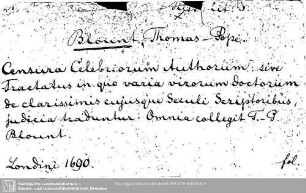 Blount, Thomas-Pope.
Censura Celebriorum Authorum: sive
Tractatus in quo varia virorum doctorum
de clarissimis cujusque Seculi Scriptoribus
judicia traduntur: Omnia collegit T.-P.
Blount.
Londini 1690. fol.